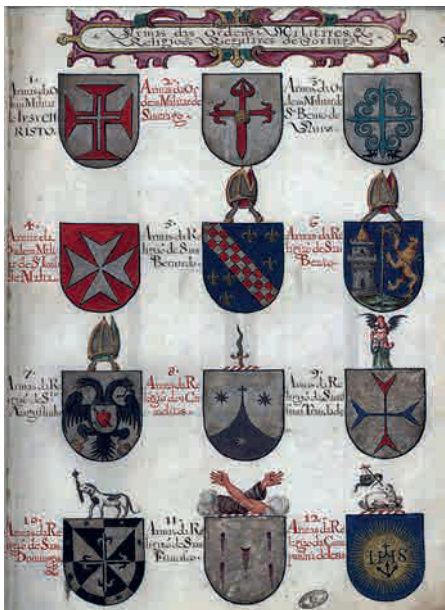 Armas das Ordens Militares &
Religiões Regulares de Portugal
1.
Armas da Or
dem Militar
de IESV CH
RISTO.
2.
Armas da Or
dem Militar de
Santiago
3.
Armas da Or
dem Militar de
S. Bento de
4.
Armas da
de S. Ioão
de Malta.
5.
Armas da Re
ligião de São
Bernardo.
6.
Armas da Re
ligião de São
Bento.
7.
Armas da Re
ligião de S.
Augustinho
8.
Armas da Re
ligião dos Car
melitas.
9.
Armas da Re
ligião da Santis
sima Trindade
10.
Armas da Re
ligião de São
Domingos
11.
Armas da Re
ligião de São
Francisco.
12.
Armas da Re
ligião da Com
panhia de Iesus
IHS